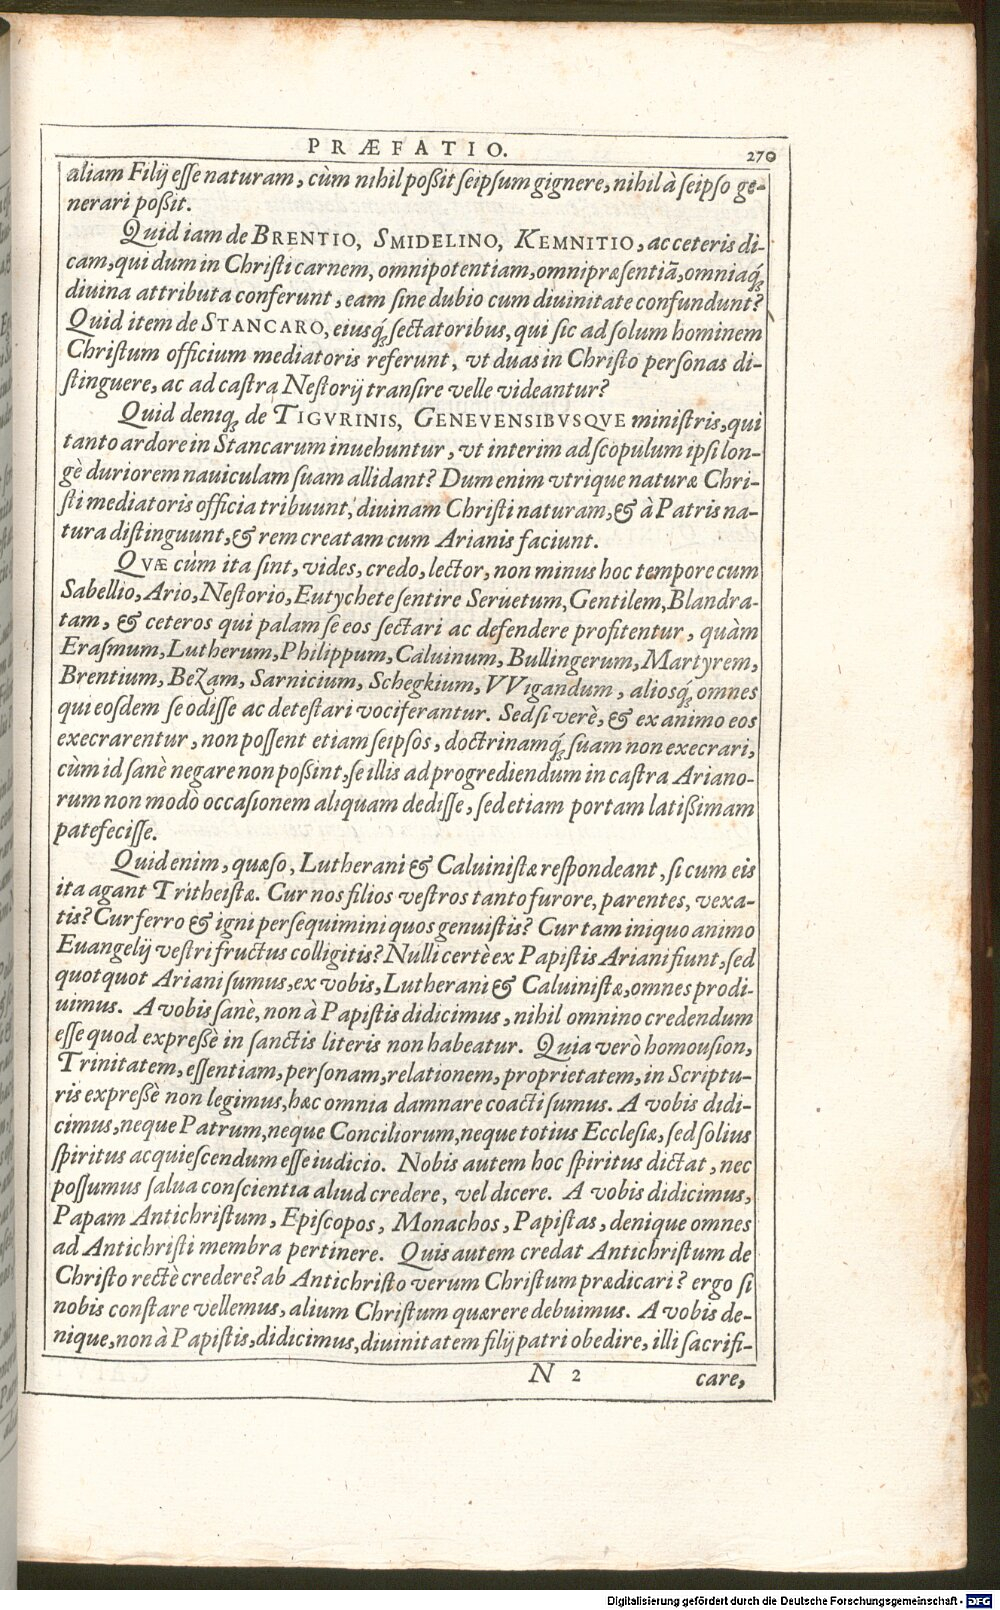 PRÆFATIO. 270
aliam Filij eſſe naturam, cùm nihil poßit ſeipſum gignere, nihil à ſeipſo ge-
nerari poßit.
Quid iam de BRENTIO, SMIDELINO, KEMNITIO, ac ceteris di-
cam, qui dum in Chriſti carnem, omnipotentiam, omnipræſentiã, omniaq́;
diuina attributa conferunt, eam ſine dubio cum diuinitate confundunt?
Quid item de STANCARO, eiusq́; ſectatoribus, qui ſic ad ſolum hominem
Chriſtum officium mediatoris referunt, vt duas in Chriſto perſonas di-
ſtinguere, ac ad caſtra Neſtorij tranſire velle videantur?
Quid deniq; de TIGVRINIS, GENEVENSIBVSQVE miniſtris, qui
tanto ardore in Stancarum inuehuntur, vt interim ad ſcopulum ipſi lon-
gè duriorem nauiculam ſuam allidant? Dum enim vtrique naturæ Chri-
ſti mediatoris officia tribuunt, diuinam Chriſti naturam, & à Patris na-
tura diſtinguunt, & rem creatam cum Arianis faciunt.
QVÆ cùm ita ſint, vides, credo, lector, non minus hoc tempore cum
Sabellio, Ario, Neſtorio, Eutychete ſentire Seruetum, Gentilem, Blandra-
tam, & ceteros qui palam ſe eos ſectari ac defendere profitentur, quàm
Eraſmum, Lutherum, Philippum, Caluinum, Bullingerum, Martyrem,
Brentium, Bezam, Sarnicium, Schegkium, VVigandum, aliosq́; omnes
qui eoſdem ſe odiſſe ac deteſtari vociferantur. Sed ſi verè, & ex animo eos
execrarentur, non poſſent etiam ſeipſos, doctrinamq́; ſuam non execrari,
cùm id ſanè negare non poßint, ſe illis ad progrediendum in caſtra Ariano-
rum non modò occaſionem aliquam dediſſe, ſed etiam portam latißimam
patefeciſſe.
Quid enim, quæſo, Lutherani & Caluiniſtæ reſpondeant, ſi cum eis
ita agant Tritheiſtæ. Cur nos filios veſtros tanto furore, parentes, vexa-
tis? Cur ferro & igni perſequimini quos genuiſtis? Cur tam iniquo animo
Euangelij veſtri fructus colligitis? Nulli certè ex Papiſtis Ariani fiunt, ſed
quotquot Ariani ſumus, ex vobis, Lutherani & Caluiniſtæ, omnes prodi-
uimus. A vobis ſanè, non à Papiſtis didicimus, nihil omnino credendum
eſſe quod expreſſè in ſanctis literis non habeatur. Quia verò homouſion,
Trinitatem, eſſentiam, perſonam, relationem, proprietatem, in Scriptu-
ris expreſſè non legimus, hæc omnia damnare coacti ſumus. A vobis didi-
cimus, neque Patrum, neque Conciliorum, neque totius Eccleſiæ, ſed ſolius
ſpiritus acquieſcendum eſſe iudicio. Nobis autem hoc ſpiritus dictat, nec
poſſumus ſalua conſcientia aliud credere, vel dicere. A vobis didicimus,
Papam Antichriſtum, Epiſcopos, Monachos, Papiſtas, denique omnes
ad Antichriſti membra pertinere. Quis autem credat Antichriſtum de
Chriſto rectè credere? ab Antichriſto verum Chriſtum prædicari? ergo ſi
nobis conſtare vellemus, alium Chriſtum quærere debuimus. A vobis de-
nique, non à Papiſtis, didicimus, diuinitatem filij patri obedire, illi ſacrifi-
N 2 care,
Digitalisierung gefördert durch die Deutsche Forschungsgemeinschaft - DFG